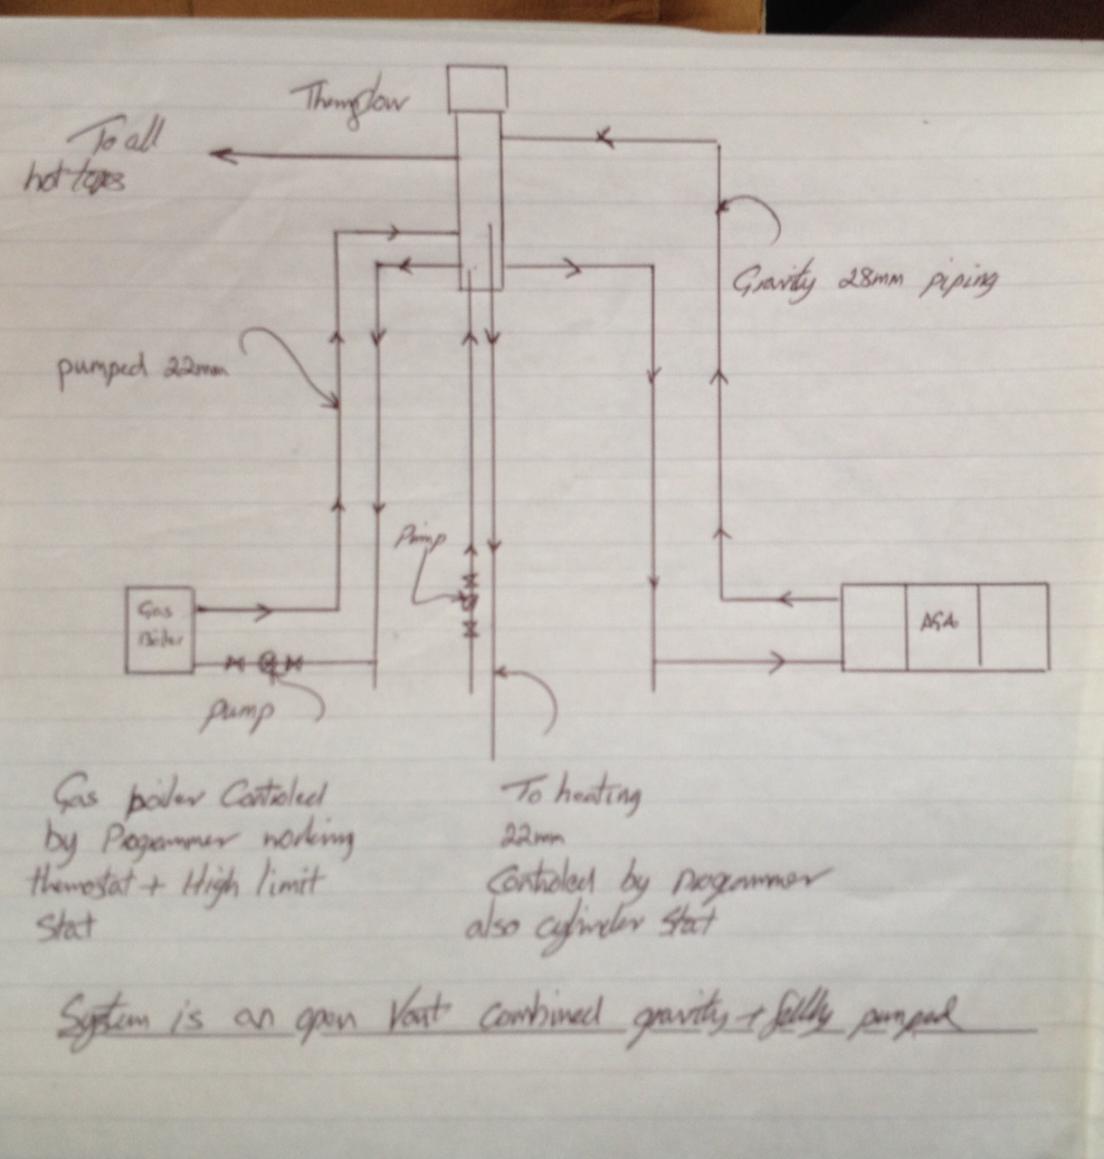 Themflow
To all
hot taps
Gravity 28mm piping
pumped 22mm
Pump
Gas
Boiler
AGA
pump
Gas boiler Controled
by Progammer working
themostat + High limit
Stat
To heating
22mm
Controled by progammer
also cylinder stat
System is an open Vent combined gravity + fully pumped